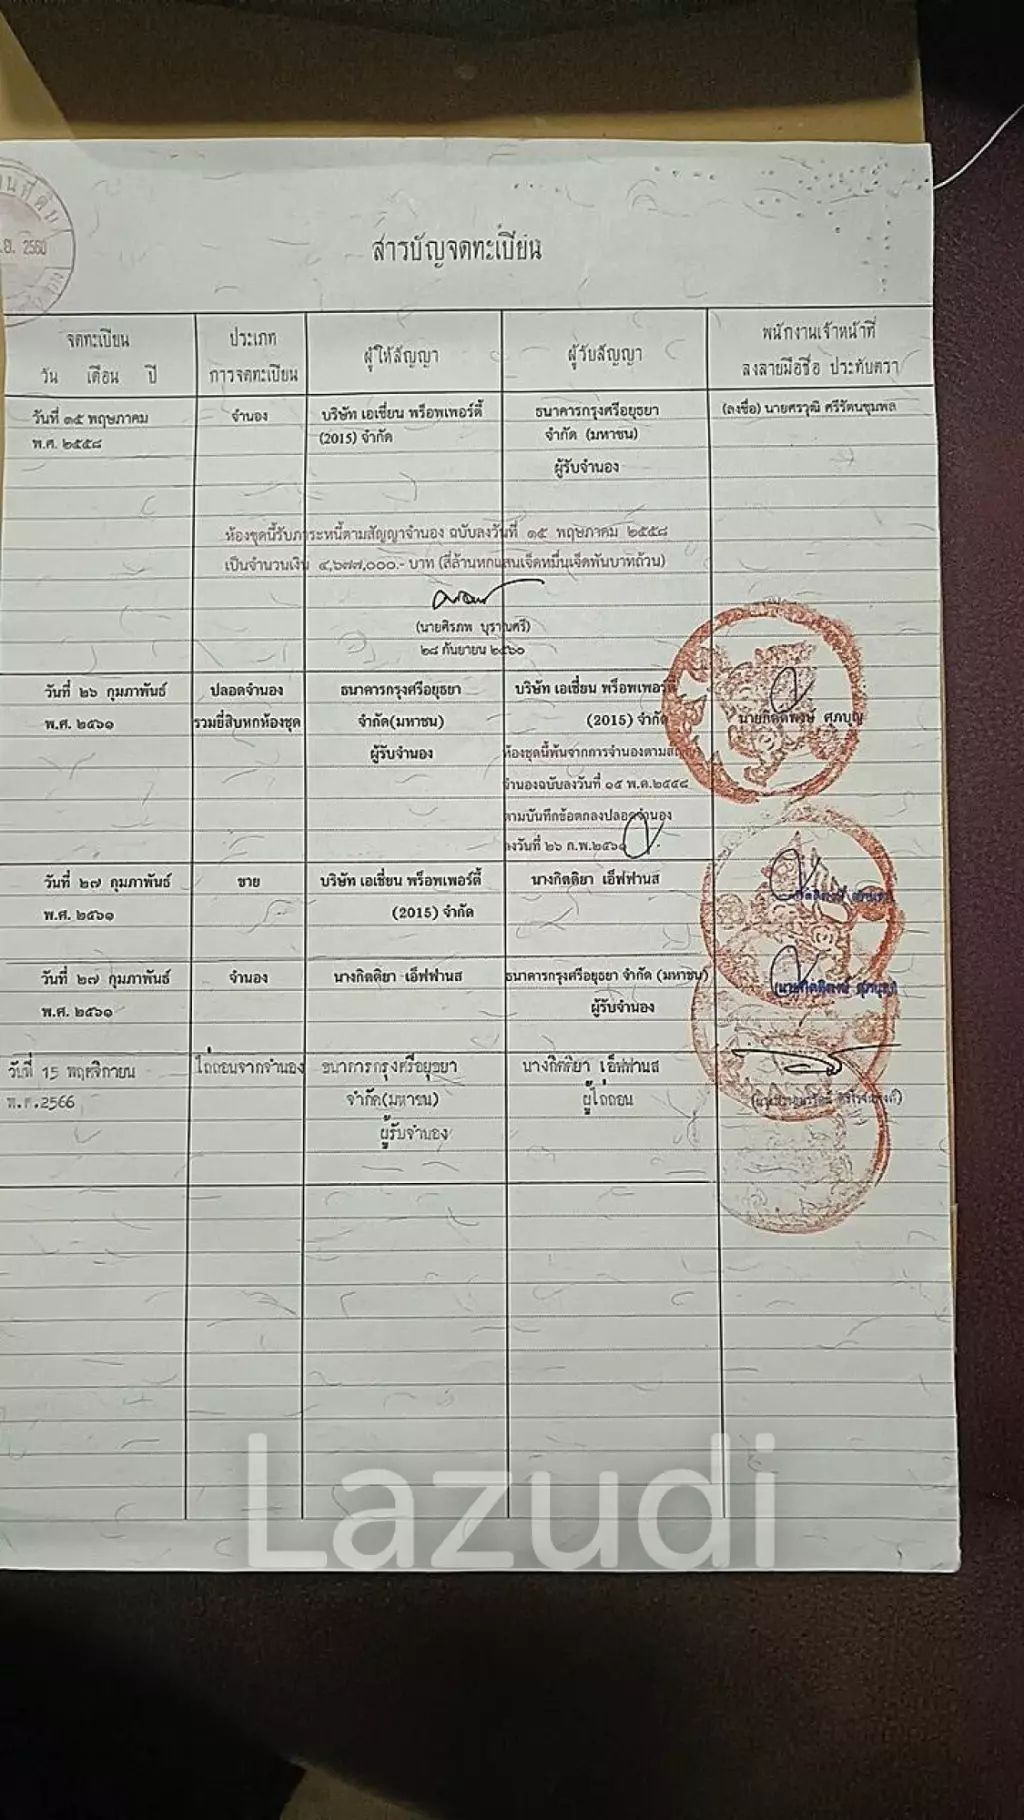 สารบัญจดทะเบียน
2560
จดทะเบียน
วัน เดือน ปี
ประเภท
การจดทะเบียน
ผู้ให้สัญญา
ผู้รับสัญญา
พนักงานเจ้าหน้าที่
ลงลายมือชื่อ ประทับตรา
วันที่ ๑๕ พฤษภาคม
พ.ศ. ๒๕๕๘
จำนอง
บริษัท เอเชี่ยน พร็อพเพอร์ตี้
(2015) จำกัด
ธนาคารกรุงศรีอยุธยา
จำกัด (มหาชน)
ผู้รับจำนอง
(ลงชื่อ) นายศราวุฒิ ศรีรัตนชุมพล
ห้องชุดนี้รับภาระหนี้ตามสัญญาจำนอง ฉบับลงวันที่ ๑๕ พฤษภาคม ๒๕๕๘
เป็นจำนวนเงิน ๔,๖๗๗,๐๐๐.- บาท (สี่ล้านหกแสนเจ็ดหมื่นเจ็ดพันบาทถ้วน)
(นายศิรภพ บุราณศรี)
๒๘ กันยายน ๒๕๖๐
วันที่ ๒๖ กุมภาพันธ์
พ.ศ. ๒๕๖๑
ปลอดจำนอง
รวมยี่สิบหกห้องชุด
ธนาคารกรุงศรีอยุธยา
จำกัด(มหาชน)
ผู้รับจำนอง
บริษัท เอเชี่ยน พร็อพเพอร์ตี้
(2015) จำกัด
ห้องชุดนี้พ้นจากการจำนองตามสัญญา
จำนองฉบับลงวันที่ ๑๕ พ.ค.๒๕๕๘
ตามบันทึกข้อตกลงปลอดจำนอง
ลงวันที่ ๒๖ ก.พ.๒๕๖๑
นายกิตติพงษ์ ศุภบุญ
วันที่ ๒๗ กุมภาพันธ์
พ.ศ. ๒๕๖๑
ขาย
บริษัท เอเชี่ยน พร็อพเพอร์ตี้
(2015) จำกัด
นางกิตติยา เอ็ฟฟานส
วันที่ ๒๗ กุมภาพันธ์
พ.ศ. ๒๕๖๑
จำนอง
นางกิตติยา เอ็ฟฟานส
ธนาคารกรุงศรีอยุธยา จำกัด (มหาชน)
ผู้รับจำนอง
(นายกิตติพงษ์ ศุภบุญ)
วันที่ 15 พฤศจิกายน
พ.ศ.2566
ไถ่ถอนจากจำนอง
ธนาคารกรุงศรีอยุธยา
จำกัด(มหาชน)
ผู้รับจำนอง
นางกิตติยา เอ็ฟฟานส
ผู้ไถ่ถอน
Lazudi